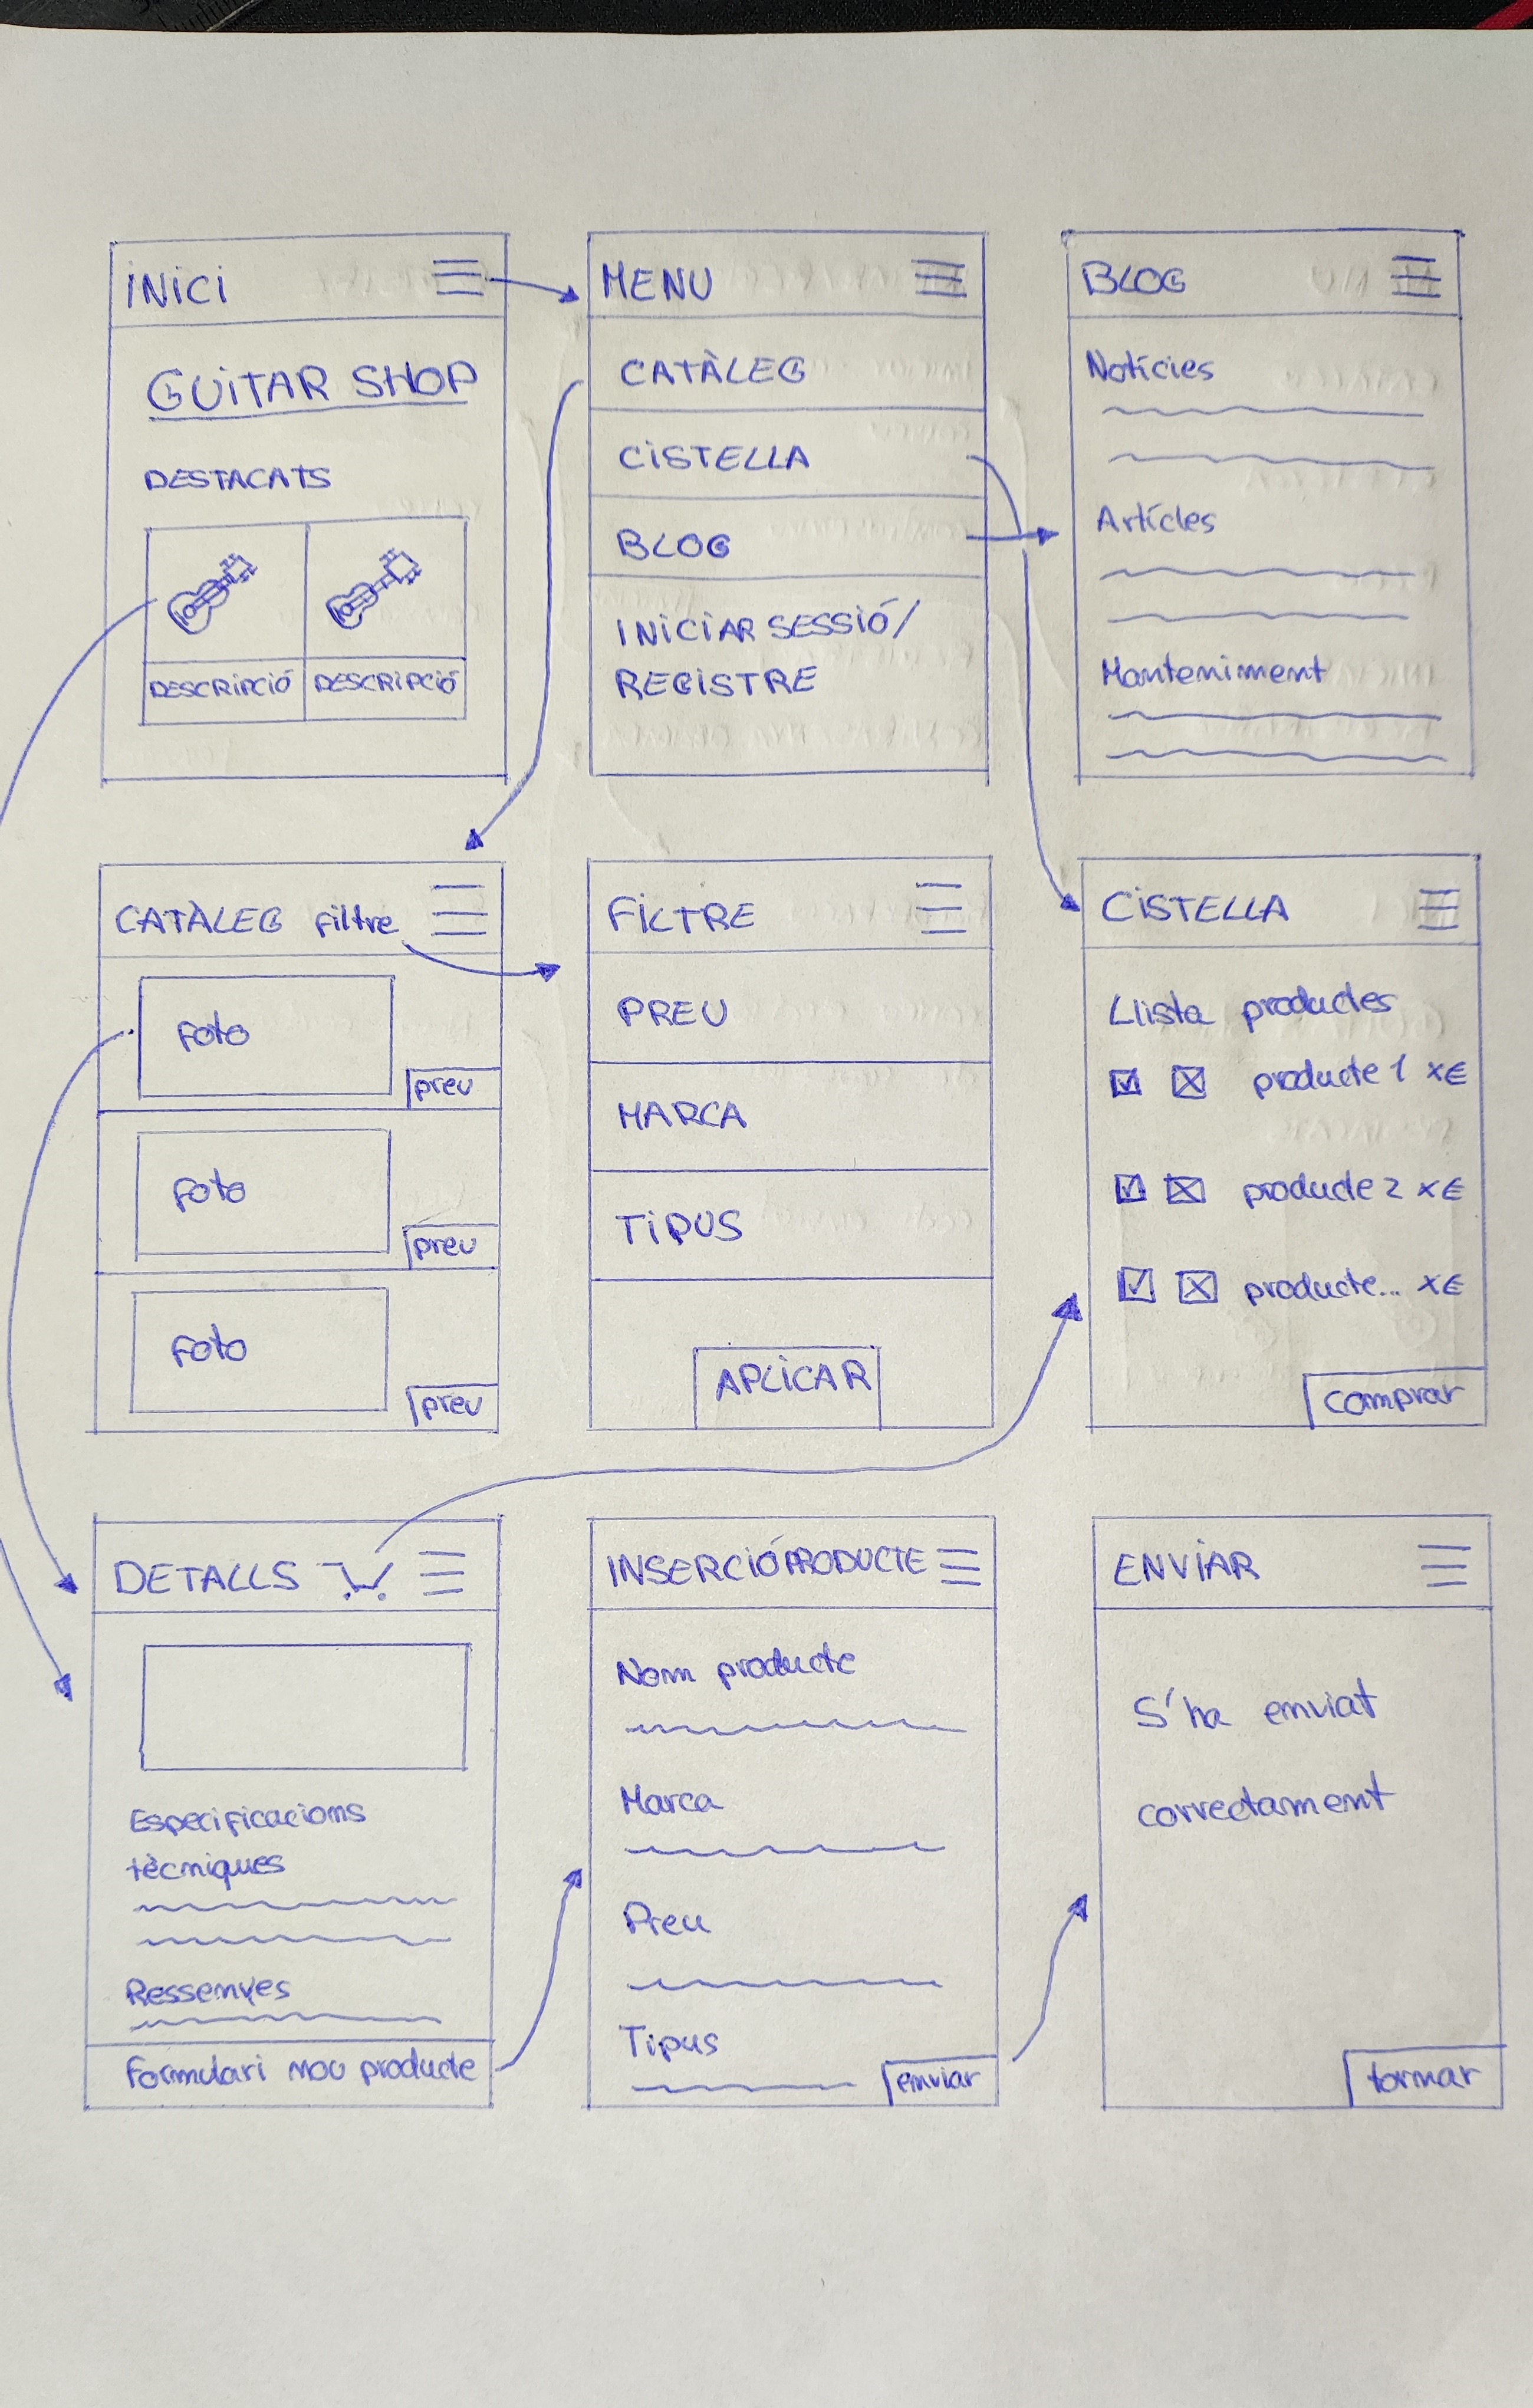 INICI
GUITAR SHOP
DESTACATS
DESCRIPCIÓ DESCRIPCIÓ
MENU
CATÀLEG
CISTELLA
BLOG
INICIAR SESSIÓ/
REGISTRE
BLOG
Notícies
Artícles
Manteniment
CATÀLEG filtre
Foto
preu
Foto
preu
Foto
preu
FILTRE
PREU
MARCA
TIPUS
APLICAR
CISTELLA
Llista productes
producte 1 x€
producte 2 x€
producte... x€
comprar
DETALLS
Especificacions
tècniques
Ressenyes
Formulari nou producte
INSERCIÓ PRODUCTE
Nom producte
Marca
Preu
Tipus
enviar
ENVIAR
S'ha enviat
correctament
tornar